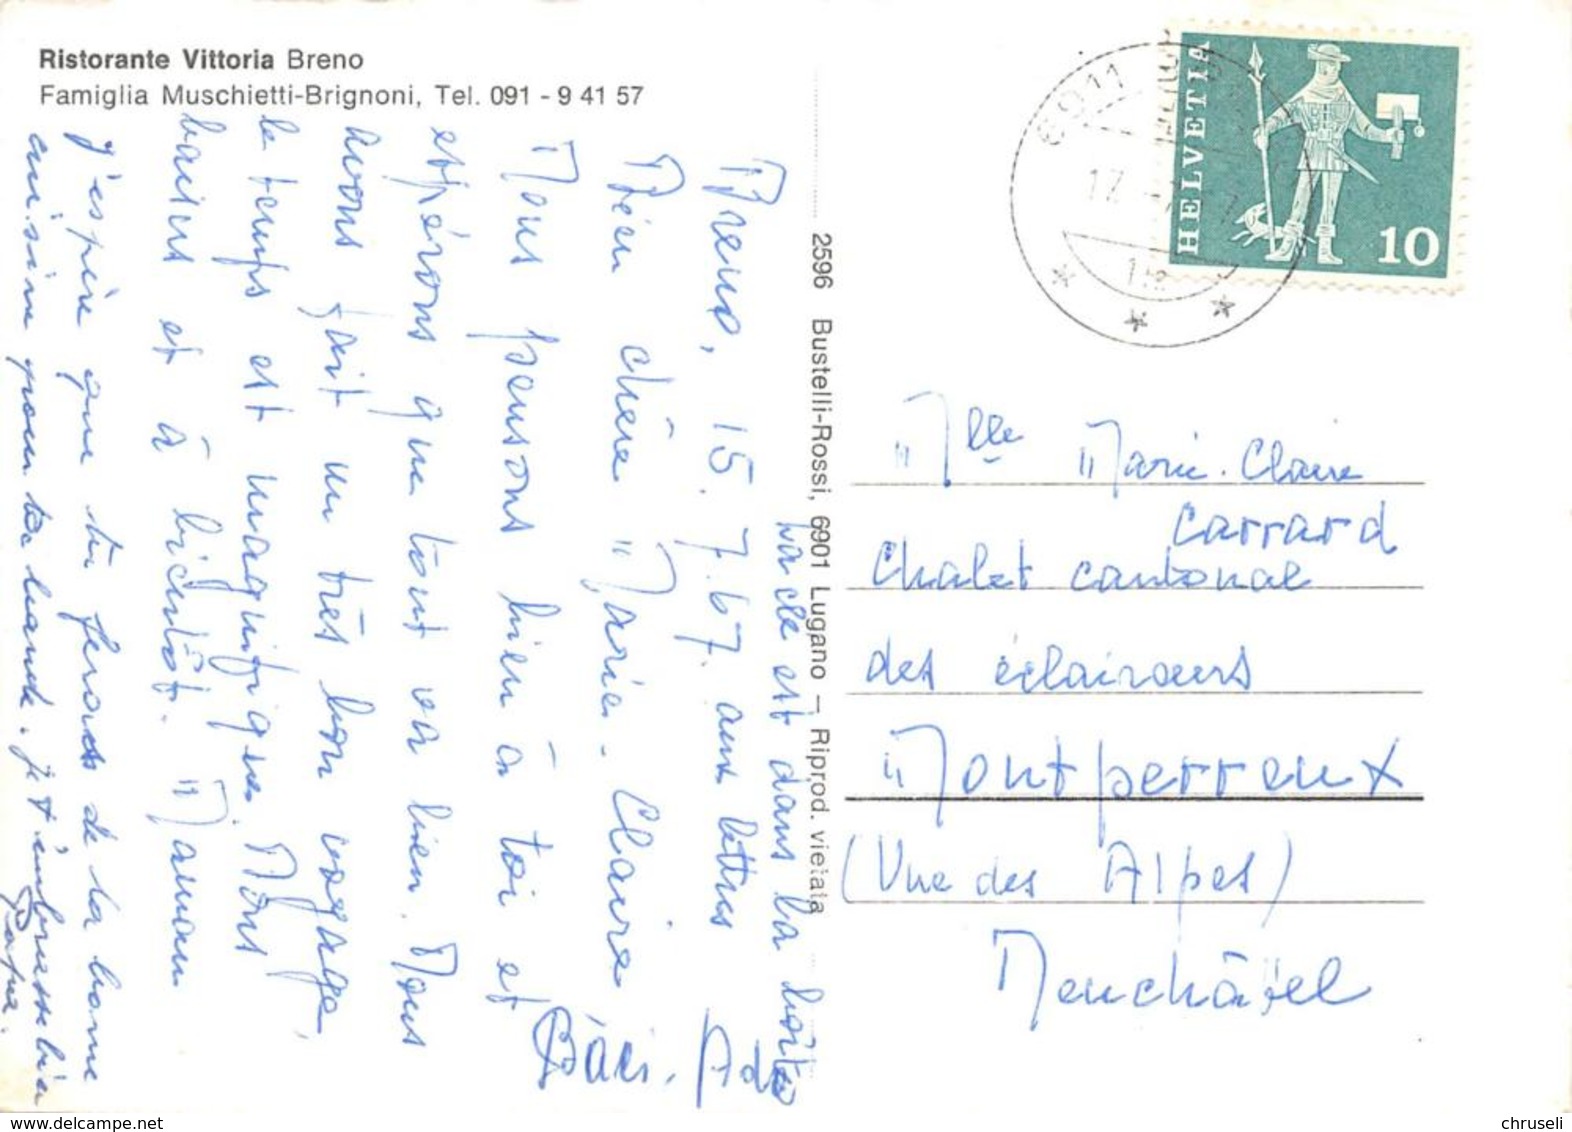 Ristorante Vittoria Breno
Famiglia Muschietti-Brignoni, Tel. 091 - 9 41 57
HELVETIA
10
6911
17
Breno, 15.7.67.
Bien chère Marie-Claire
Nous pensons bien à toi et
espérons que tout va bien. Nous
avons fait un très bon voyage,
le temps est magnifique. Mons
baisers et à bientôt. Maman
j'espère que tu feras de la bonne
cuisine pour ta bande. je t'embrasse bien
Papa.
La clé est dans la boîte
aux lettres
2596 Bustelli-Rossi, 6901 Lugano — Riprod. vietata
Mlle Marie-Claire
Carrard
Chalet cantonal
des éclaireurs
Montperreux
(Vue des Alpes)
Neuchâtel
chruseli